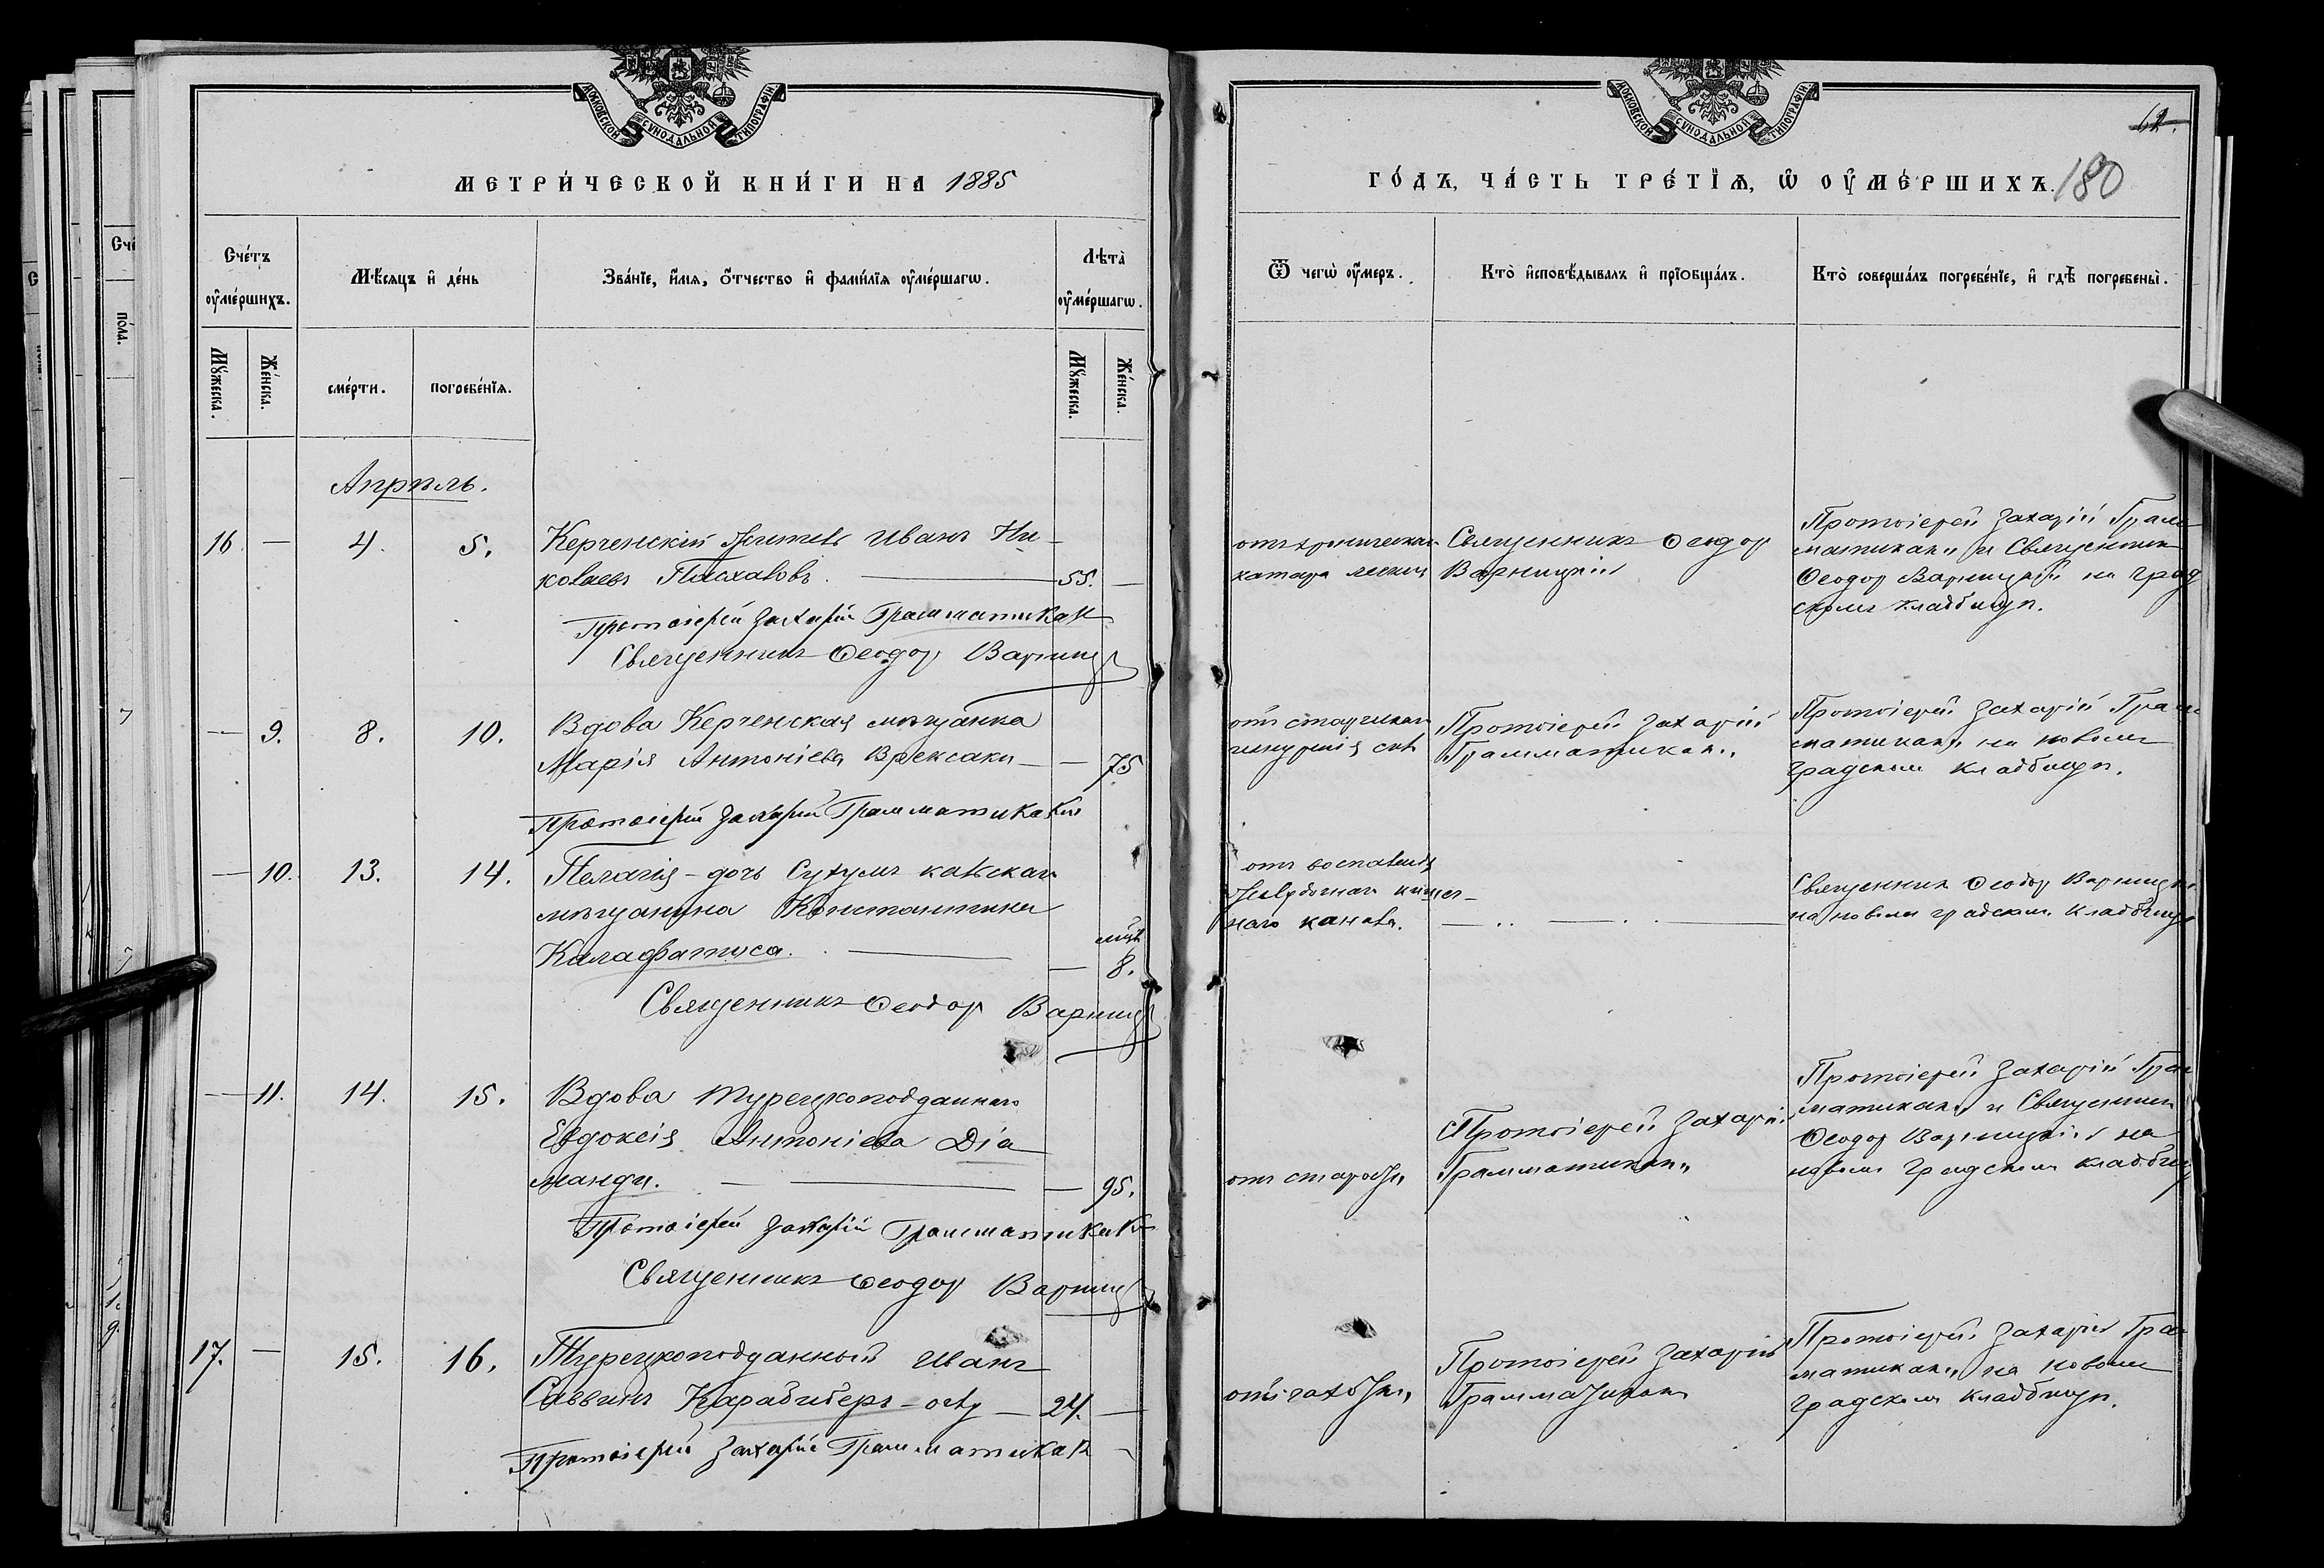 МОСКОВСКОЙ СѴНОДАЛЬНОЙ ТИПОГРАФІИ
МЕТРИ́ЧЕСКОЙ КНИ́ГИ НА 1885
Сче́тъ ᲂу҆ме́ршихъ.
Мѣ́сяцъ и҆ де́нь
Зва́нїе, и҆́мя, ѻ҆́тчество и҆ фами́лїя ᲂу҆ме́ршагѡ.
Лѣта̀ ᲂу҆ме́ршагѡ.
Мꙋ́жеска.
Же́нска.
сме́рти.
погребе́нїя.
Мꙋ́жеска.
Же́нска.
Апрѣль.
16. — 4. 5. Керченскій житель Иванъ Ни-
колаевъ Пасхаловъ. — 55. —
Протоіерей Захарій Грамматикак
Священникъ Ѳеодор Варниц
— 9. 8. 10. Вдова Керченская мѣщанка
Марія Антоніева Врексаки — — 75
Протоіерей Захарій Грамматикаки
— 10. 13. 14. Пелагія - дочь Сухумъ кальскаго
мѣщанина Константина
Калафатиса. — — 8.
Священникъ Ѳеодор Варниц
— 11. 14. 15. Вдова Турецкоподданнаго
Евдоксія Антоніева Діа-
манди. — — 95.
Протоіерей Захарій Грамматикаки
Священникъ Ѳеодор Варниц
17. — 15. 16. Турецкоподданный Иванъ
Саввинъ Карабиберъ-оглу — 24. —
Протоіерей Захарій Грамматикак
МОСКОВСКОЙ СѴНОДАЛЬНОЙ ТИПОГРАФІИ
62.
ГО́ДЪ, ЧА́СТЬ ТРЕ́ТЇѦ, Ѡ҆ ОУ҆МЕ́РШИХЪ. 180
Ѿ чегѡ̀ ᲂу҆́меръ.
Кто̀ и҆сповѣ́дывалъ и҆ прїобща́лъ.
Кто̀ соверша́лъ погребе́нїе, и҆ гдѣ̀ погребены̀.
отъ хроническаго
катара легкихъ
Священникъ Ѳеодор
Варницкій
Протоіерей Захарій Грам-
матикаки и Священник
Ѳеодор Варницкій на град
скомъ кладбищѣ.
отъ старческаго
Протоіерей Захарій
Грамматикаки
Протоіерей Захарій Грам
матикаки на новомъ
градскомъ кладбищѣ.
отъ воспаленія
желудочнаго кишеч-
наго канала.
Священник Ѳеодор Варницкі
на новомъ градском кладбищѣ
отъ старости
Протоіерей Захарій
Грамматикаки
Протоіерей Захарій Грам
матикаки и Священник
Ѳеодор Варницкій на
новомъ градскомъ кладбищ
отъ чахотки
Протоіерей Захарій
Грамматикаки
Протоіерей Захарій Грам
матикаки на новомъ
градскомъ кладбищѣ.